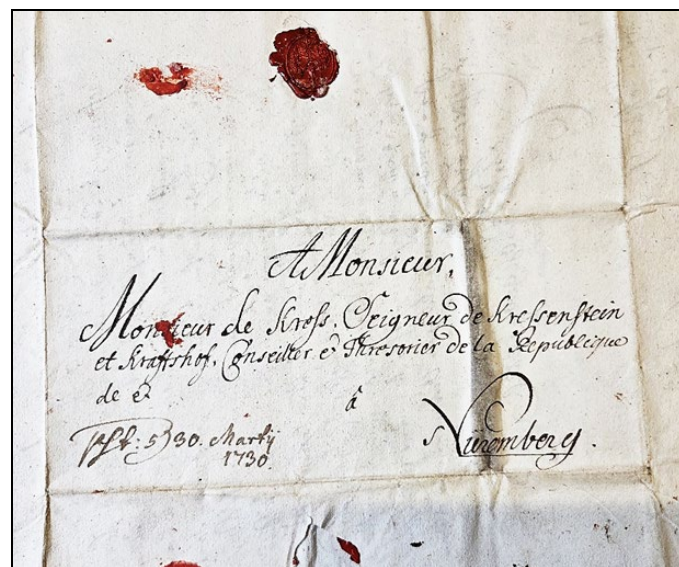 A Monsieur,
Monsieur de Kress, Seigneur de Kressenstein
et Kraftshof, Conseiller et Thresorier de la Republique
de et
à
Nuremberg.
30. Martij
1730.